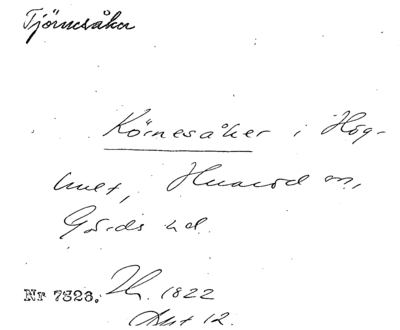 Tjörnesåker
Körnesåker i Hög-
hult, Huaröd sn,
Gärds hd.
Nr 7328. Th. 1822
Akt 12.